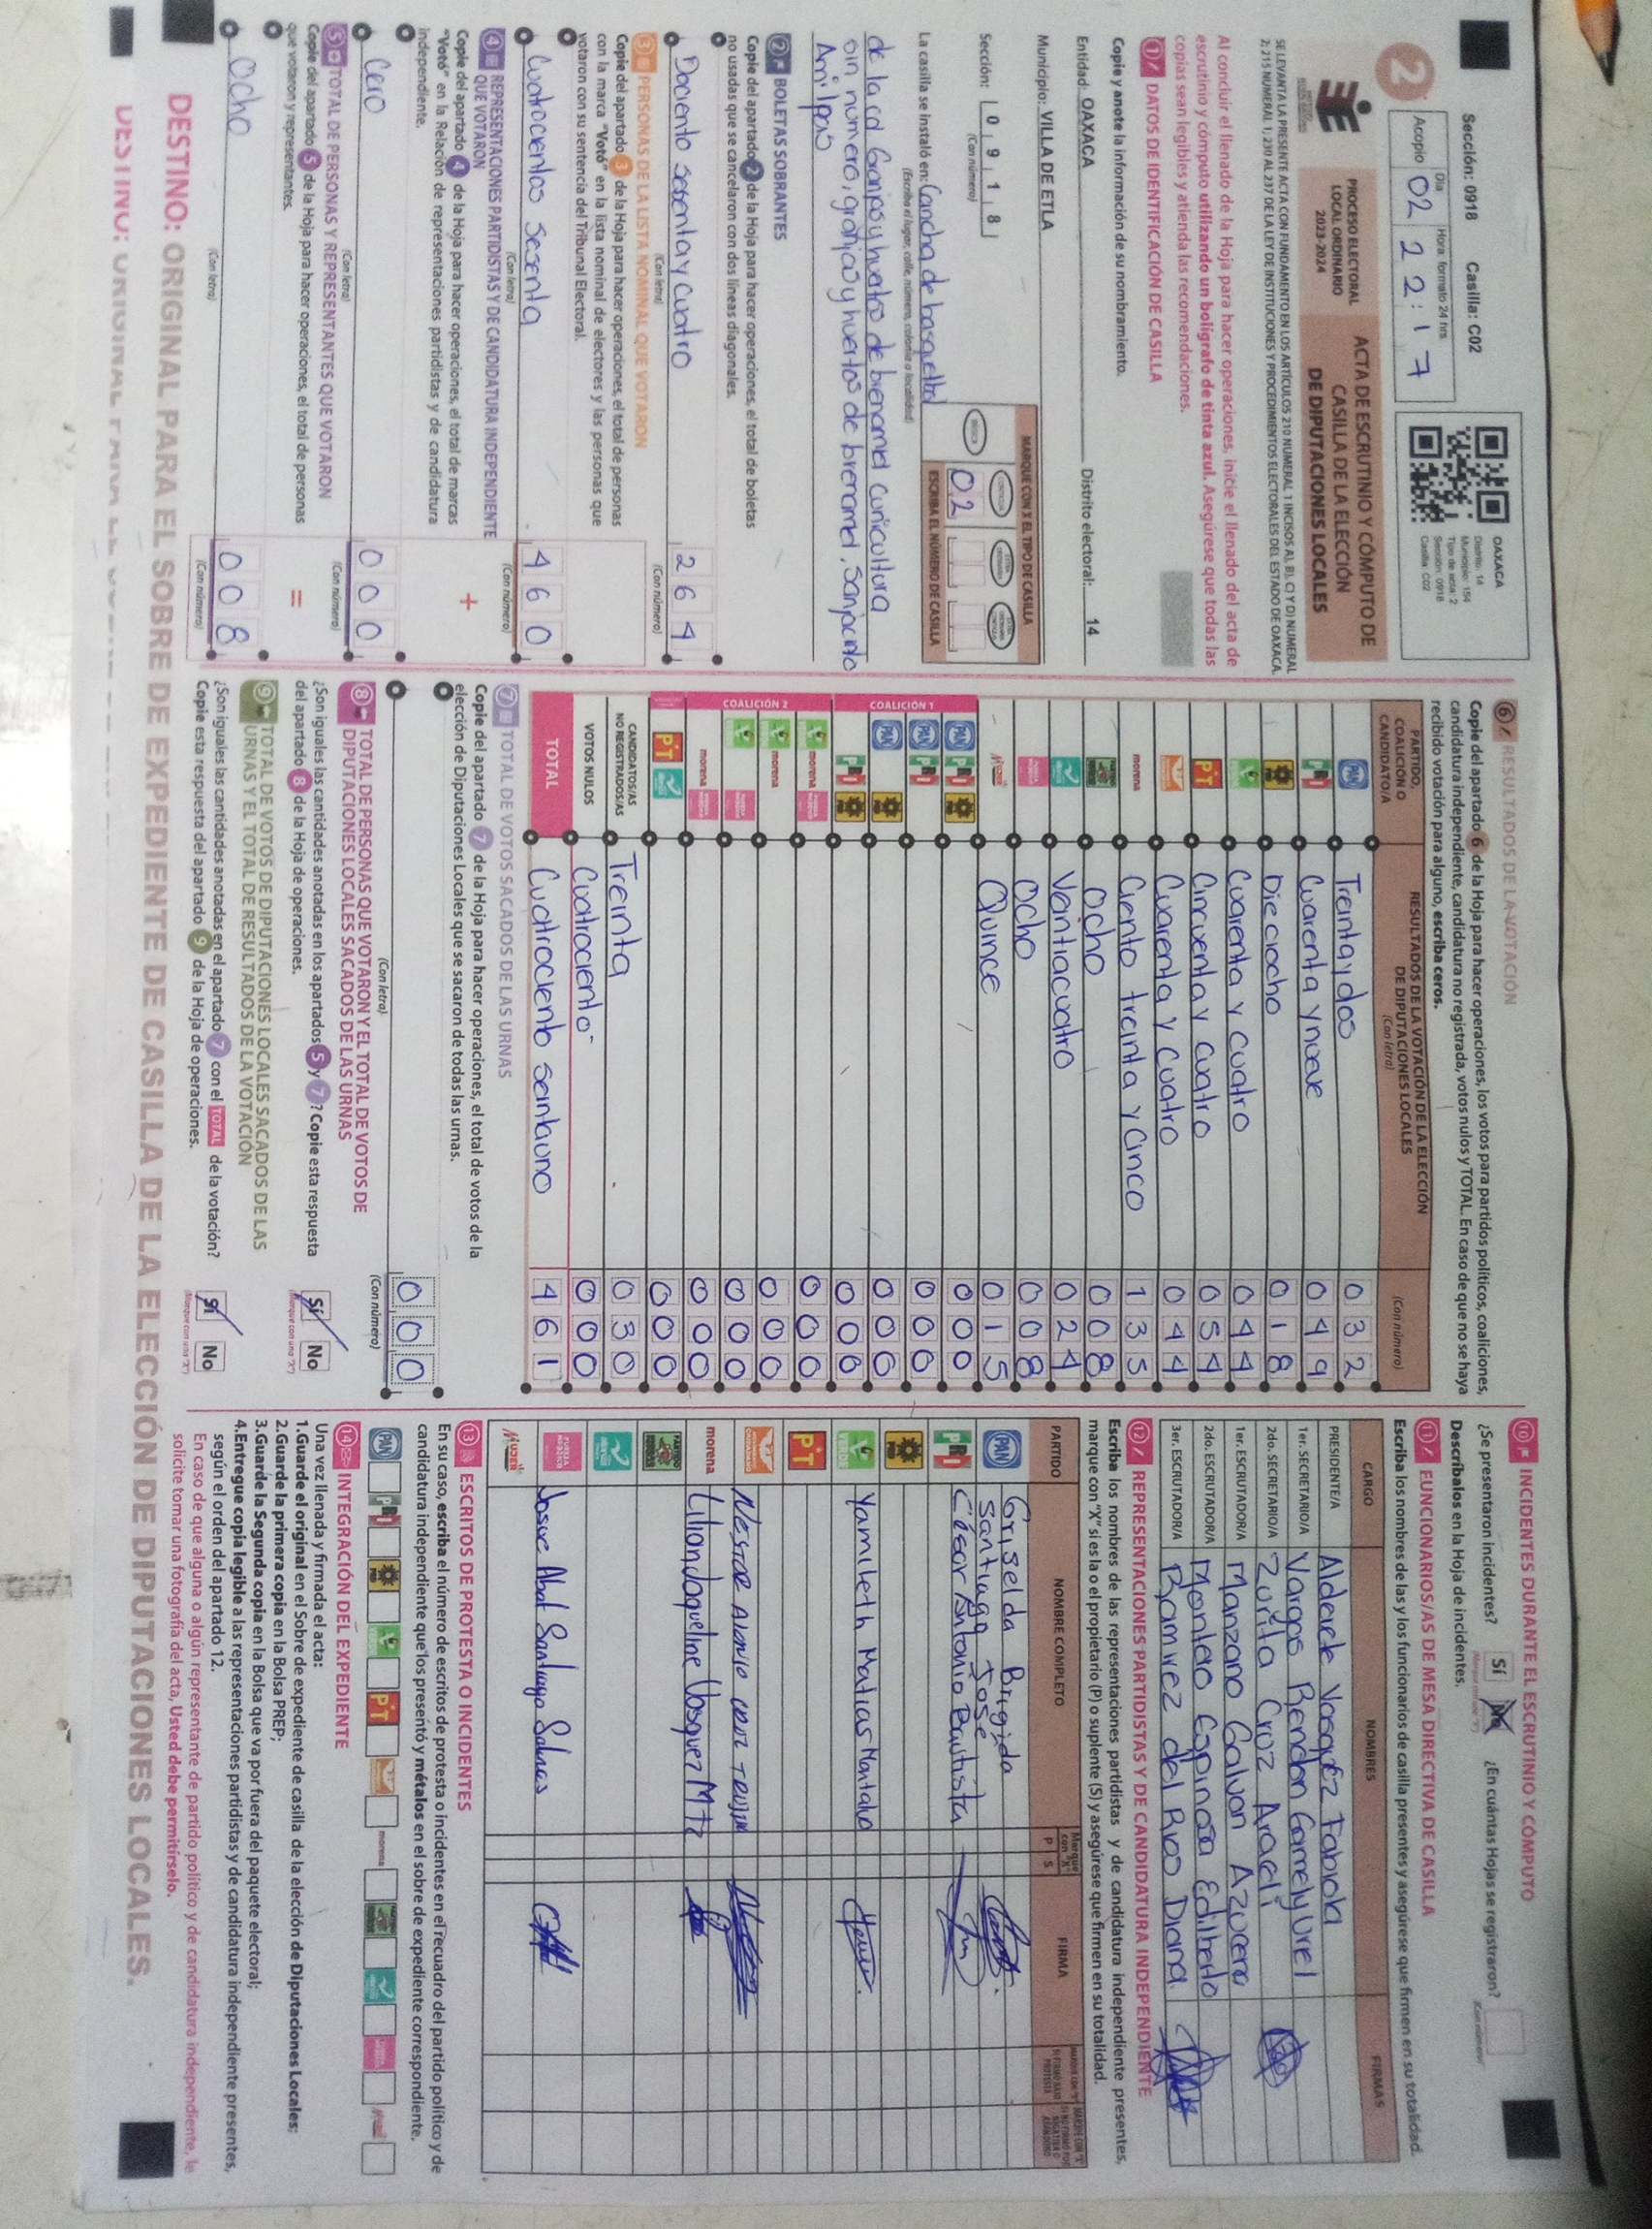 Sección: 0918 Casilla: C02
2
Acopio
Día
02
Hora: formato 24 hrs
22:17
OAXACA
Distrito: 14
Municipio: 154
Tipo de acta: 2
Sección: 0918
Casilla: C02
PROCESO ELECTORAL
LOCAL ORDINARIO
2023-2024
ACTA DE ESCRUTINIO Y CÓMPUTO DE
CASILLA DE LA ELECCIÓN
DE DIPUTACIONES LOCALES
SE LEVANTA LA PRESENTE ACTA CON FUNDAMENTO EN LOS ARTÍCULOS 210 NUMERAL 1 INCISOS A), B), C) Y D) NUMERAL
2; 215 NUMERAL 1; 230 AL 237 DE LA LEY DE INSTITUCIONES Y PROCEDIMIENTOS ELECTORALES DEL ESTADO DE OAXACA.
Al concluir el llenado de la Hoja para hacer operaciones, inicie el llenado del acta de
escrutinio y cómputo utilizando un bolígrafo de tinta azul. Asegúrese que todas las
copias sean legibles y atienda las recomendaciones.
1 DATOS DE IDENTIFICACIÓN DE CASILLA
Copie y anote la información de su nombramiento.
Entidad: OAXACA Distrito electoral: 14
Municipio: VILLA DE ETLA
Sección: 0918
(Con número)
MARQUE CON X EL TIPO DE CASILLA
BÁSICA
02
ESCRIBA EL NÚMERO DE CASILLA
La casilla se instaló en: Cancha de basquetbol
(Escriba el lugar, calle, número, colonia o localidad)
2 BOLETAS SOBRANTES
Copie del apartado 2 de la Hoja para hacer operaciones, el total de boletas
no usadas que se cancelaron con dos líneas diagonales.
Dociento sesenta y cuatro
264
(Con letra) (Con número)
3 PERSONAS DE LA LISTA NOMINAL QUE VOTARON
Copie del apartado 3 de la Hoja para hacer operaciones, el total de personas
con la marca "Votó" en la lista nominal de electores y las personas que
votaron con su sentencia del Tribunal Electoral.
Cuatrocientos sesenta
460
(Con letra) (Con número)
4 REPRESENTACIONES PARTIDISTAS Y DE CANDIDATURA INDEPENDIENTE
QUE VOTARON
Copie del apartado 4 de la Hoja para hacer operaciones, el total de marcas
"Votó" en la Relación de representaciones partidistas y de candidatura
independiente.
+
Cero
000
(Con letra) (Con número)
5 TOTAL DE PERSONAS Y REPRESENTANTES QUE VOTARON
Copie del apartado 5 de la Hoja para hacer operaciones, el total de personas
que votaron y representantes.
=
Ocho
008
(Con letra) (Con número)
6 RESULTADOS DE LA VOTACIÓN
Copie del apartado 6 de la Hoja para hacer operaciones, los votos para partidos políticos, coaliciones,
candidatura independiente, candidatura no registrada, votos nulos y TOTAL. En caso de que no se haya
recibido votación para alguno, escriba ceros.
PARTIDO,
COALICIÓN O
CANDIDATO/A
RESULTADOS DE LA VOTACIÓN DE LA ELECCIÓN
DE DIPUTACIONES LOCALES
(Con letra)
(Con número)
PAN Treinta y dos 032
PRI Cuarenta y nueve 049
PRD Dieciocho 018
VERDE Cuarenta y cuatro 044
PT Cincuenta y cuatro 054
Cuarenta y cuatro 044
morena Ciento treinta y cinco 135
Ocho 008
Vaintiacuatro 024
Ocho 008
MUJER Quince 015
COALICIÓN 1
PAN PRI PRD 000
PAN PRI 000
PAN PRD 000
PRI PRD 000
COALICIÓN 2
VERDE morena 000
VERDE morena 000
VERDE 000
morena 000
PT 000
CANDIDATOS/AS
NO REGISTRADOS/AS
Treinta 030
VOTOS NULOS Cuatrociento 000
TOTAL Cuatrociento sentauno 461
7 TOTAL DE VOTOS SACADOS DE LAS URNAS
Copie del apartado 7 de la Hoja para hacer operaciones, el total de votos de la
elección de Diputaciones Locales que se sacaron de todas las urnas.
000
(Con letra) (Con número)
8 TOTAL DE PERSONAS QUE VOTARON Y EL TOTAL DE VOTOS DE
DIPUTACIONES LOCALES SACADOS DE LAS URNAS
¿Son iguales las cantidades anotadas en los apartados 5 y 7? Copie esta respuesta
del apartado 8 de la Hoja de operaciones.
Sí No
9 TOTAL DE VOTOS DE DIPUTACIONES LOCALES SACADOS DE LAS
URNAS Y EL TOTAL DE RESULTADOS DE LA VOTACIÓN
¿Son iguales las cantidades anotadas en el apartado 7 con el TOTAL de la votación?
Copie esta respuesta del apartado 9 de la Hoja de operaciones.
Sí No
10 INCIDENTES DURANTE EL ESCRUTINIO Y CÓMPUTO
¿Se presentaron incidentes? Sí No ¿En cuántas Hojas se registraron?
Descríbalos en la Hoja de incidentes.
11 FUNCIONARIOS/AS DE MESA DIRECTIVA DE CASILLA
Escriba los nombres de las y los funcionarios de casilla presentes y asegúrese que firmen en su totalidad.
CARGO NOMBRES FIRMAS
PRESIDENTE/A Alderete Vasquez Fabiola
1er. SECRETARIO/A Vargas Rendon Gamely Uriel
2do. SECRETARIO/A Zurita Cruz Araceli
1er. ESCRUTADOR/A Manzano Galvan Azucena
2do. ESCRUTADOR/A Montaño Espinosa Edilberto
3er. ESCRUTADOR/A Ramirez del Rios Diana
12 REPRESENTACIONES PARTIDISTAS Y DE CANDIDATURA INDEPENDIENTE
Escriba los nombres de las representaciones partidistas y de candidatura independiente presentes,
marque con "X" si es la o el propietario (P) o suplente (S) y asegúrese que firmen en su totalidad.
PARTIDO NOMBRE COMPLETO Marque con "X" P S FIRMA
PAN Griselda Brigida
Santiago José
PRI César Antonio Bautista
PRD
VERDE Yamileth Matias Montaño
PT
morena Lilian Jaqueline Vasquez Mtz
Josue Abat Santiago Salinas
MUJER
13 ESCRITOS DE PROTESTA O INCIDENTES
En su caso, escriba el número de escritos de protesta o incidentes en el recuadro del partido político y de
candidatura independiente que los presentó y métalos en el sobre de expediente correspondiente.
PAN PRI PRD VERDE PT morena
14 INTEGRACIÓN DEL EXPEDIENTE
Una vez llenada y firmada el acta:
1.Guarde el original en el Sobre de expediente de casilla de la elección de Diputaciones Locales;
2.Guarde la primera copia en la Bolsa PREP;
3.Guarde la Segunda copia en la Bolsa que va por fuera del paquete electoral;
4.Entregue copia legible a las representaciones partidistas y de candidatura independiente presentes,
según el orden del apartado 12.
En caso de que alguna o algún representante de partido político y de candidatura independiente, le
solicite tomar una fotografía del acta, Usted debe permitírselo.
DESTINO: ORIGINAL PARA EL SOBRE DE EXPEDIENTE DE CASILLA DE LA ELECCIÓN DE DIPUTACIONES LOCALES.